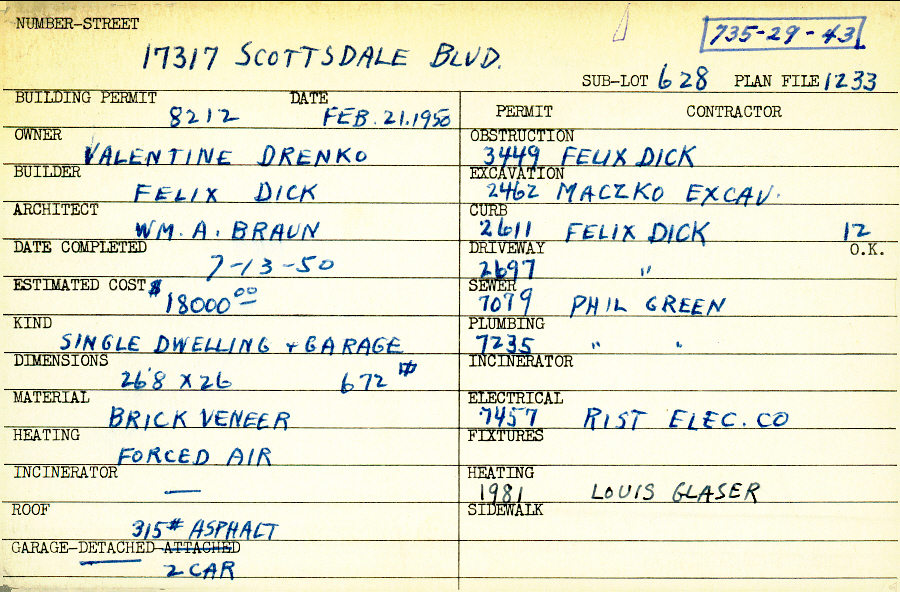 NUMBER-STREET
735-29-43
17317 SCOTTSDALE BLVD.
SUB-LOT 628 PLAN FILE 1233
BUILDING PERMIT DATE
8212 FEB. 21. 1950
OWNER
VALENTINE DRENKO
BUILDER
FELIX DICK
ARCHITECT
WM. A. BRAUN
DATE COMPLETED
7-13-50
ESTIMATED COST $
18000 00
KIND
SINGLE DWELLING + GARAGE
DIMENSIONS
26'8 X 26 672 #
MATERIAL
BRICK VENEER
HEATING
FORCED AIR
INCINERATOR
—
ROOF
315# ASPHALT
GARAGE-DETACHED-ATTACHED
2 CAR
PERMIT CONTRACTOR
OBSTRUCTION
3449 FELIX DICK
EXCAVATION
2462 MACZKO EXCAV.
CURB
2611 FELIX DICK 12
DRIVEWAY O.K.
2697 "
SEWER
7079 PHIL GREEN
PLUMBING
7235 " "
INCINERATOR
ELECTRICAL
7457 RIST ELEC. CO
FIXTURES
HEATING
1981 LOUIS GLASER
SIDEWALK